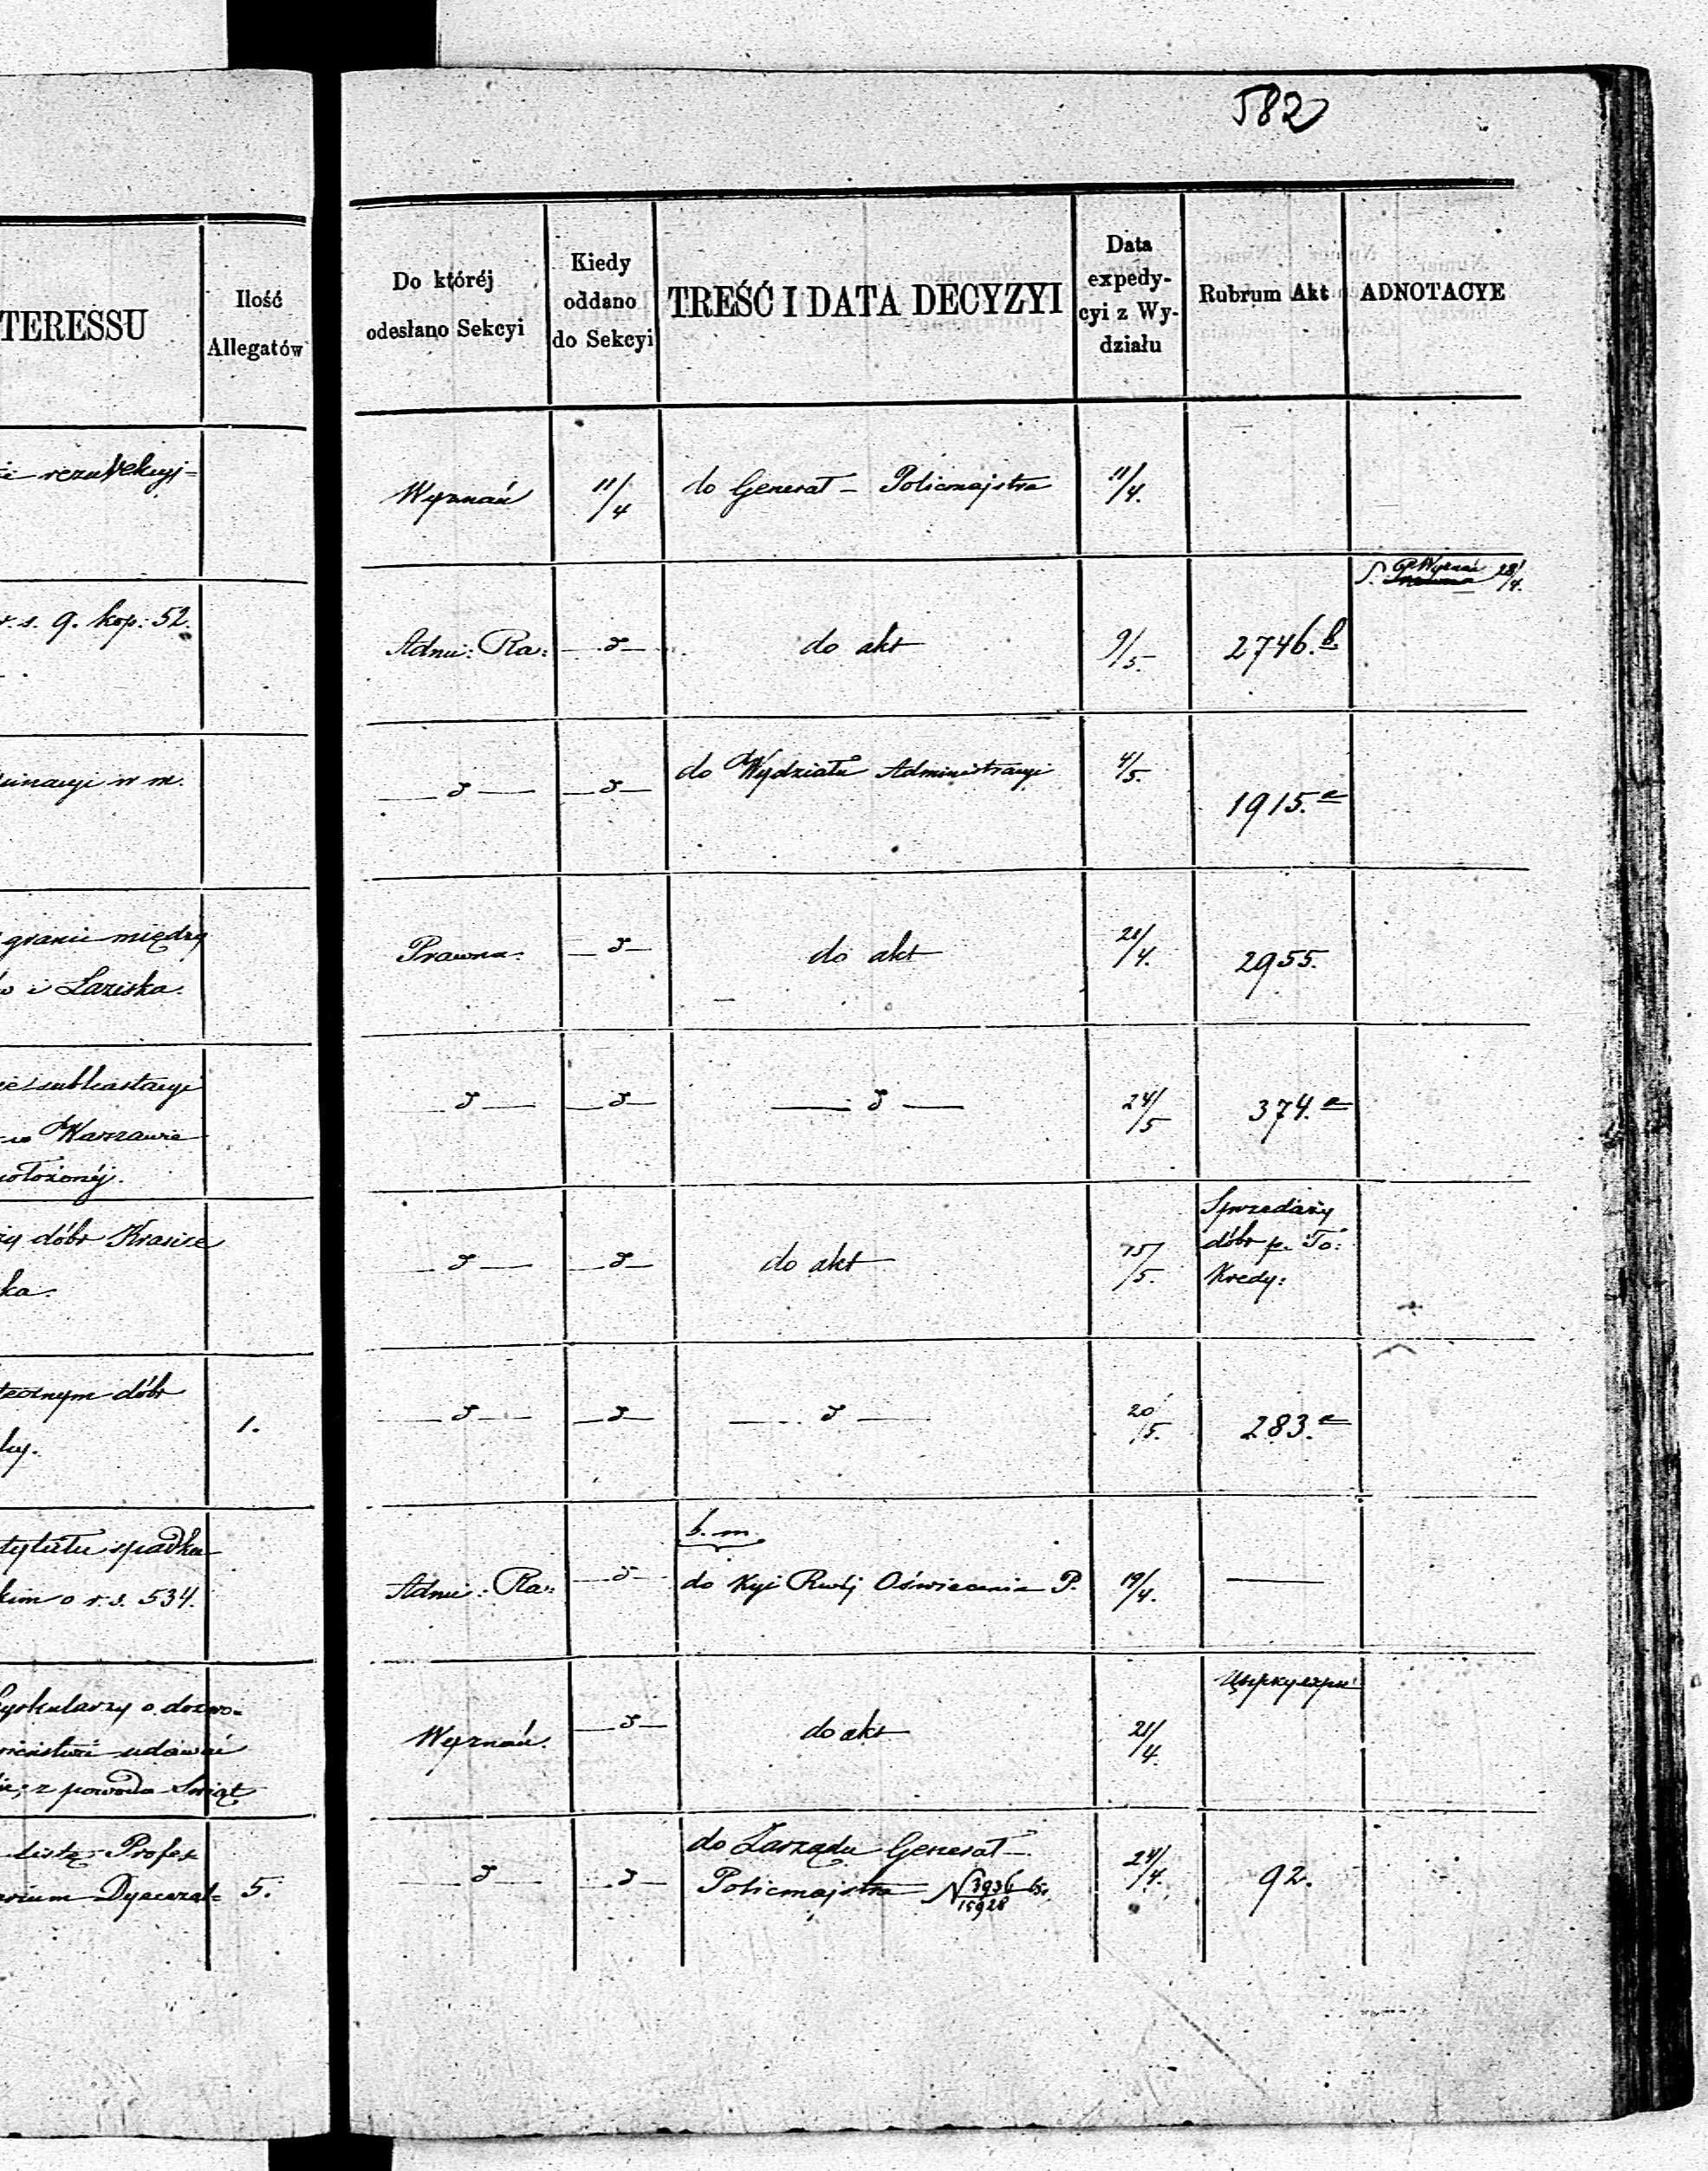 582
TERESSU
Ilość
Allegatów
Do któréj
odesłano Sekcyi
Kiedy
oddano
do Sekcyi
TREŚĆ I DATA DECYZYI
Data
expedy-
cyi z Wy-
działu
Rubrum Akt
ADNOTACYE
Wyznań 11/4 do Generał - Policmajstra 11/4.
28/4.
r. s. 9. kop: 52.
Admi: Ra: — d — do akt 9/5. 2746.b
w m.
— d — — d — do Wydziału Administracyi 4/5. 1915.a
granic między
i Łaziska.
Prawna. — d — do akt 21/4. 2955.
subhastacyi
w Warszawie
położonéj.
— d — — d — — d — 24/5 374.a
dóbr Krasice
ka.
— d — — d — do akt 15/5. Sprzedaży
dóbr p. To:
Kredy:
dóbr
1.
— d — — d — — d — 20/5. 283.a
tytułu spadku
kim o r. s. 534.
b. m.
Admi: Ra: — d — do Kyi Rwéj Oświecenia P. 19/4. —
Cyrkularzy o dozwo-
udawać
z powodu Świąt
Wyznań. — d — do akt 21/4 Циркуляры
listę Profes
5.
— d — — d — do Zarządu Generał -
Policmajstra N 3936/15928 24/4. 92.